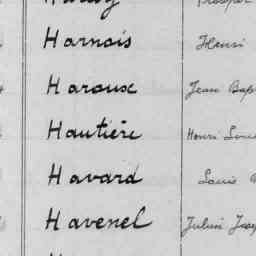 Harnois Henri
Haroux Jean Bap
Hautière Henri Loui
Havard Louis
Havenel Julien